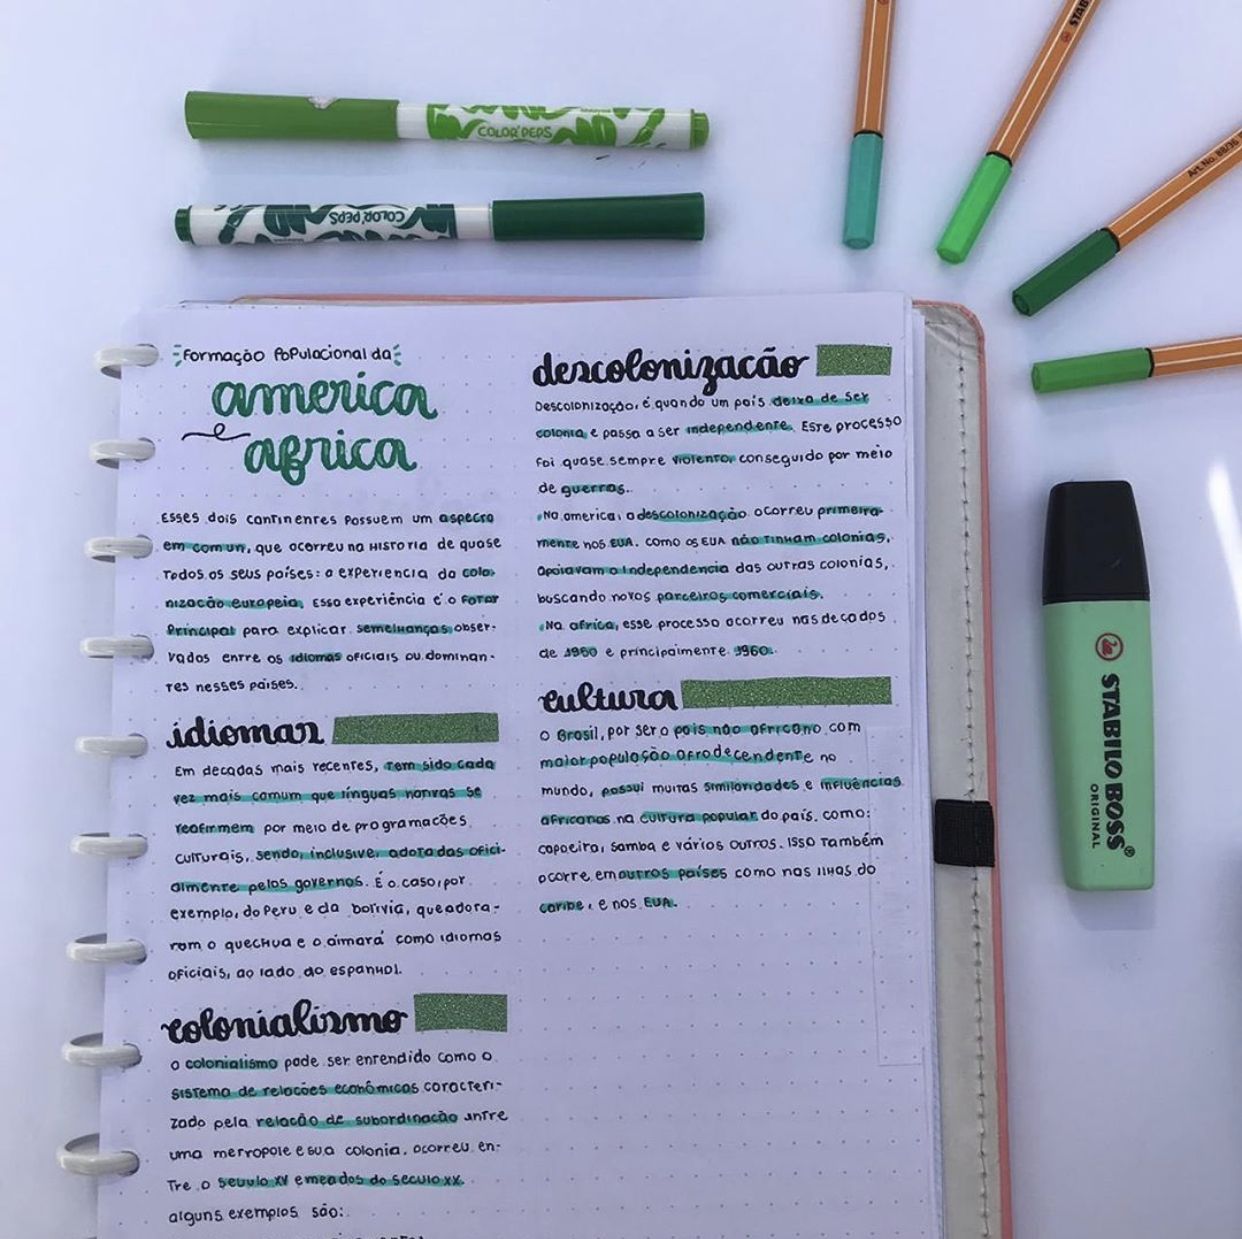 COLOR'PEPS
COLOR'PEPS
STAB
Art. No. 88/36
Formação Populacional da
america
e
africa
Esses dois continentes possuem um aspecto
em comun, que ocorreu na historia de quase
todos os seus países: a experiencia da colo-
nização europeia. Essa experiência é o fator
principal para explicar semelhanças obser-
vadas entre os idiomas oficiais ou dominan-
tes nesses países.
idiomas
Em decadas mais recentes, tem sido cada
vez mais comum que línguas nativas se
reafirmem por meio de programações
culturais, sendo, inclusive, adotadas ofici-
almente pelos governos. É o caso, por
exemplo, do Peru e da bolivia, que adota-
ram o quechua e o aimará como idiomas
oficiais, ao lado do espanhol.
colonialismo
O colonialismo pode ser entendido como o
sistema de relacões econômicas caracteri-
zado pela relacão de subordinacão entre
uma metropole e sua colonia. ocorreu en-
tre o seculo XV e meados do seculo XX.
alguns exemplos são:
descolonizacão
Descolonização, é quando um país deixa de ser
colonia e passa a ser independente. Este processo
foi quase sempre violento, conseguido por meio
de guerras.
Na america, a descolonização ocorreu primeira-
mente nos EUA. como os EUA não tinham colonias,
apoiavam a independencia das outras colonias,
buscando novos parceiros comerciais.
Na africa, esse processo ocorreu nas decadas
de 1950 e principalmente 1960.
cultura
O Brasil, por ser o país não africano com
maior população afrodecendente no
mundo, possui muitas similaridades e influências
africanas na cultura popular do país. como:
capoeira, samba e vários outros. Isso também
ocorre em outros países como nas ilhas do
caribe, e nos EUA.
STABILO BOSS®
ORIGINAL